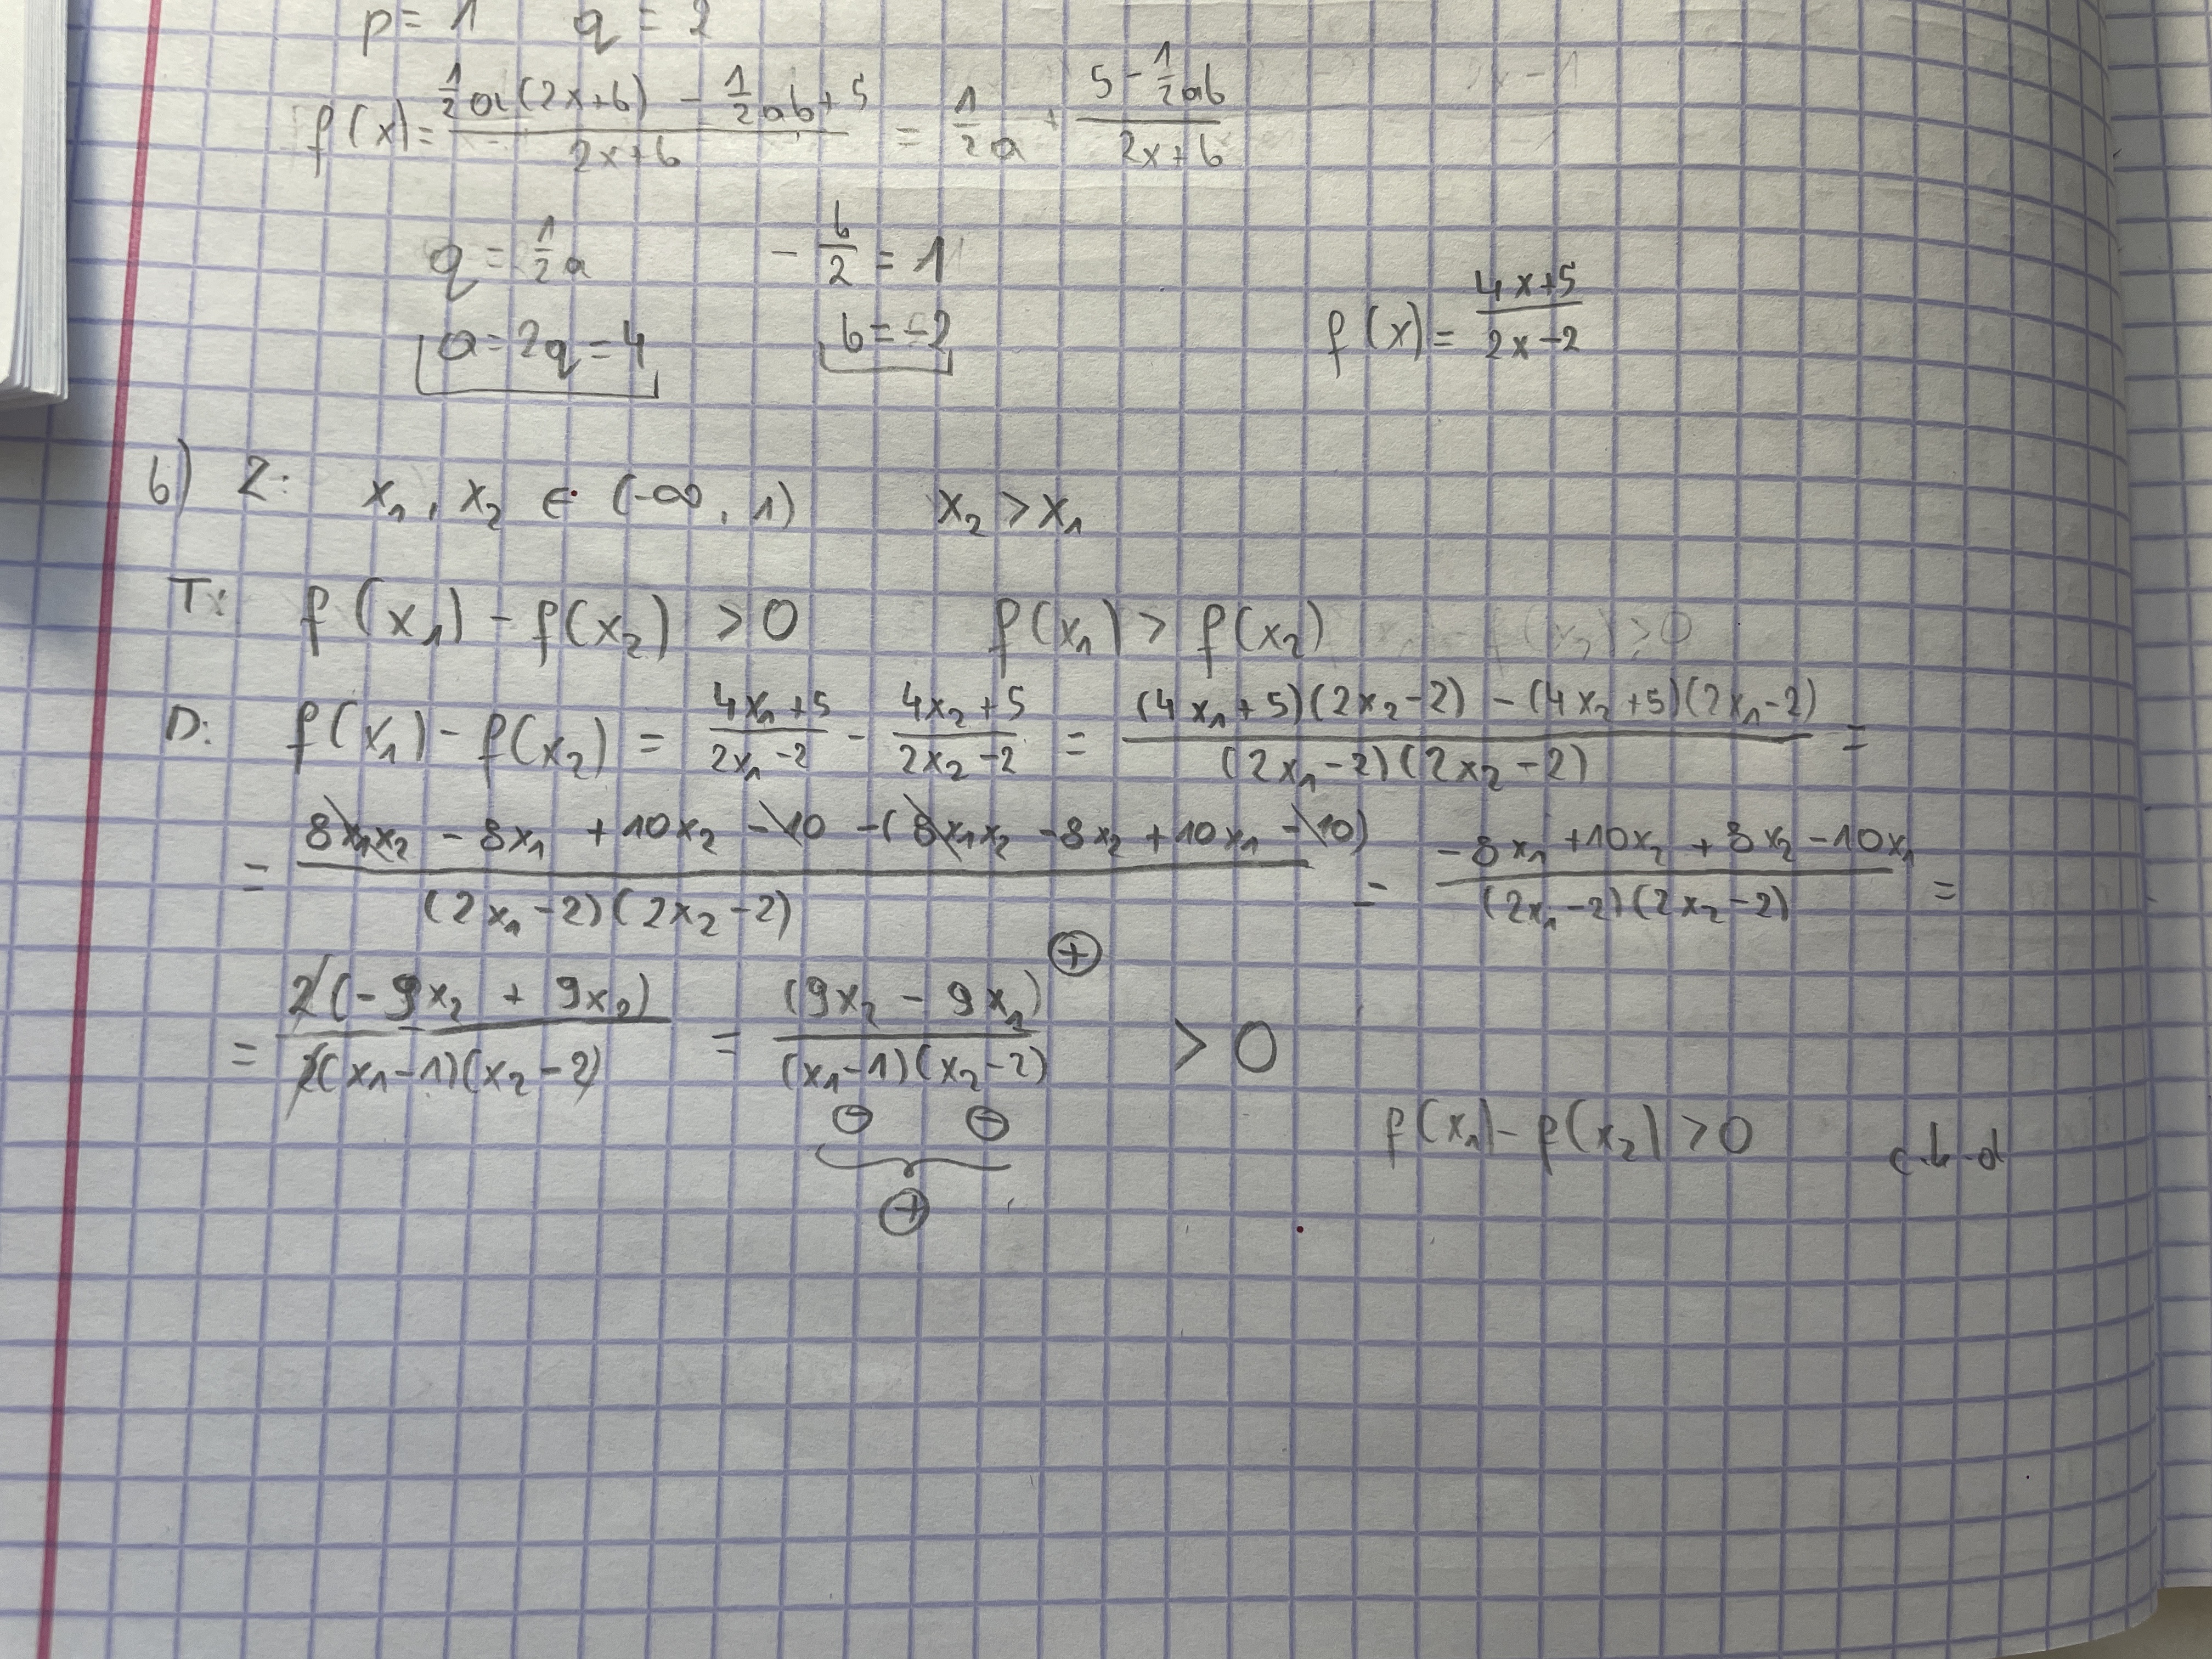 p = 1 q = 2
f(x) = (½a(2x+b) - ½ab + 5)/(2x+b) = ½a + (5 - ½ab)/(2x+b)
q = ½a -b/2 = 1
a = 2q = 4 b = -2 f(x) = (4x+5)/(2x-2)
b) Z: x₁, x₂ ∈ (-∞, 1) x₂ > x₁
T: f(x₁) - f(x₂) > 0 f(x₁) > f(x₂)
D: f(x₁) - f(x₂) = (4x₁+5)/(2x₁-2) - (4x₂+5)/(2x₂-2) = ((4x₁+5)(2x₂-2) - (4x₂+5)(2x₁-2))/((2x₁-2)(2x₂-2)) =
= (8x₁x₂ - 8x₁ + 10x₂ - 10 - (8x₁x₂ - 8x₂ + 10x₁ - 10))/((2x₁-2)(2x₂-2)) = (-8x₁ + 10x₂ + 8x₂ - 10x₁)/((2x₁-2)(2x₂-2)) =
= 2(-9x₂ + 9x₂)/(2(x₁-1)(x₂-2)) = (9x₂ - 9x₁)/((x₁-1)(x₂-2)) > 0
⊕
⊖ ⊖
⊕
f(x₁) - f(x₂) > 0 c.k.d